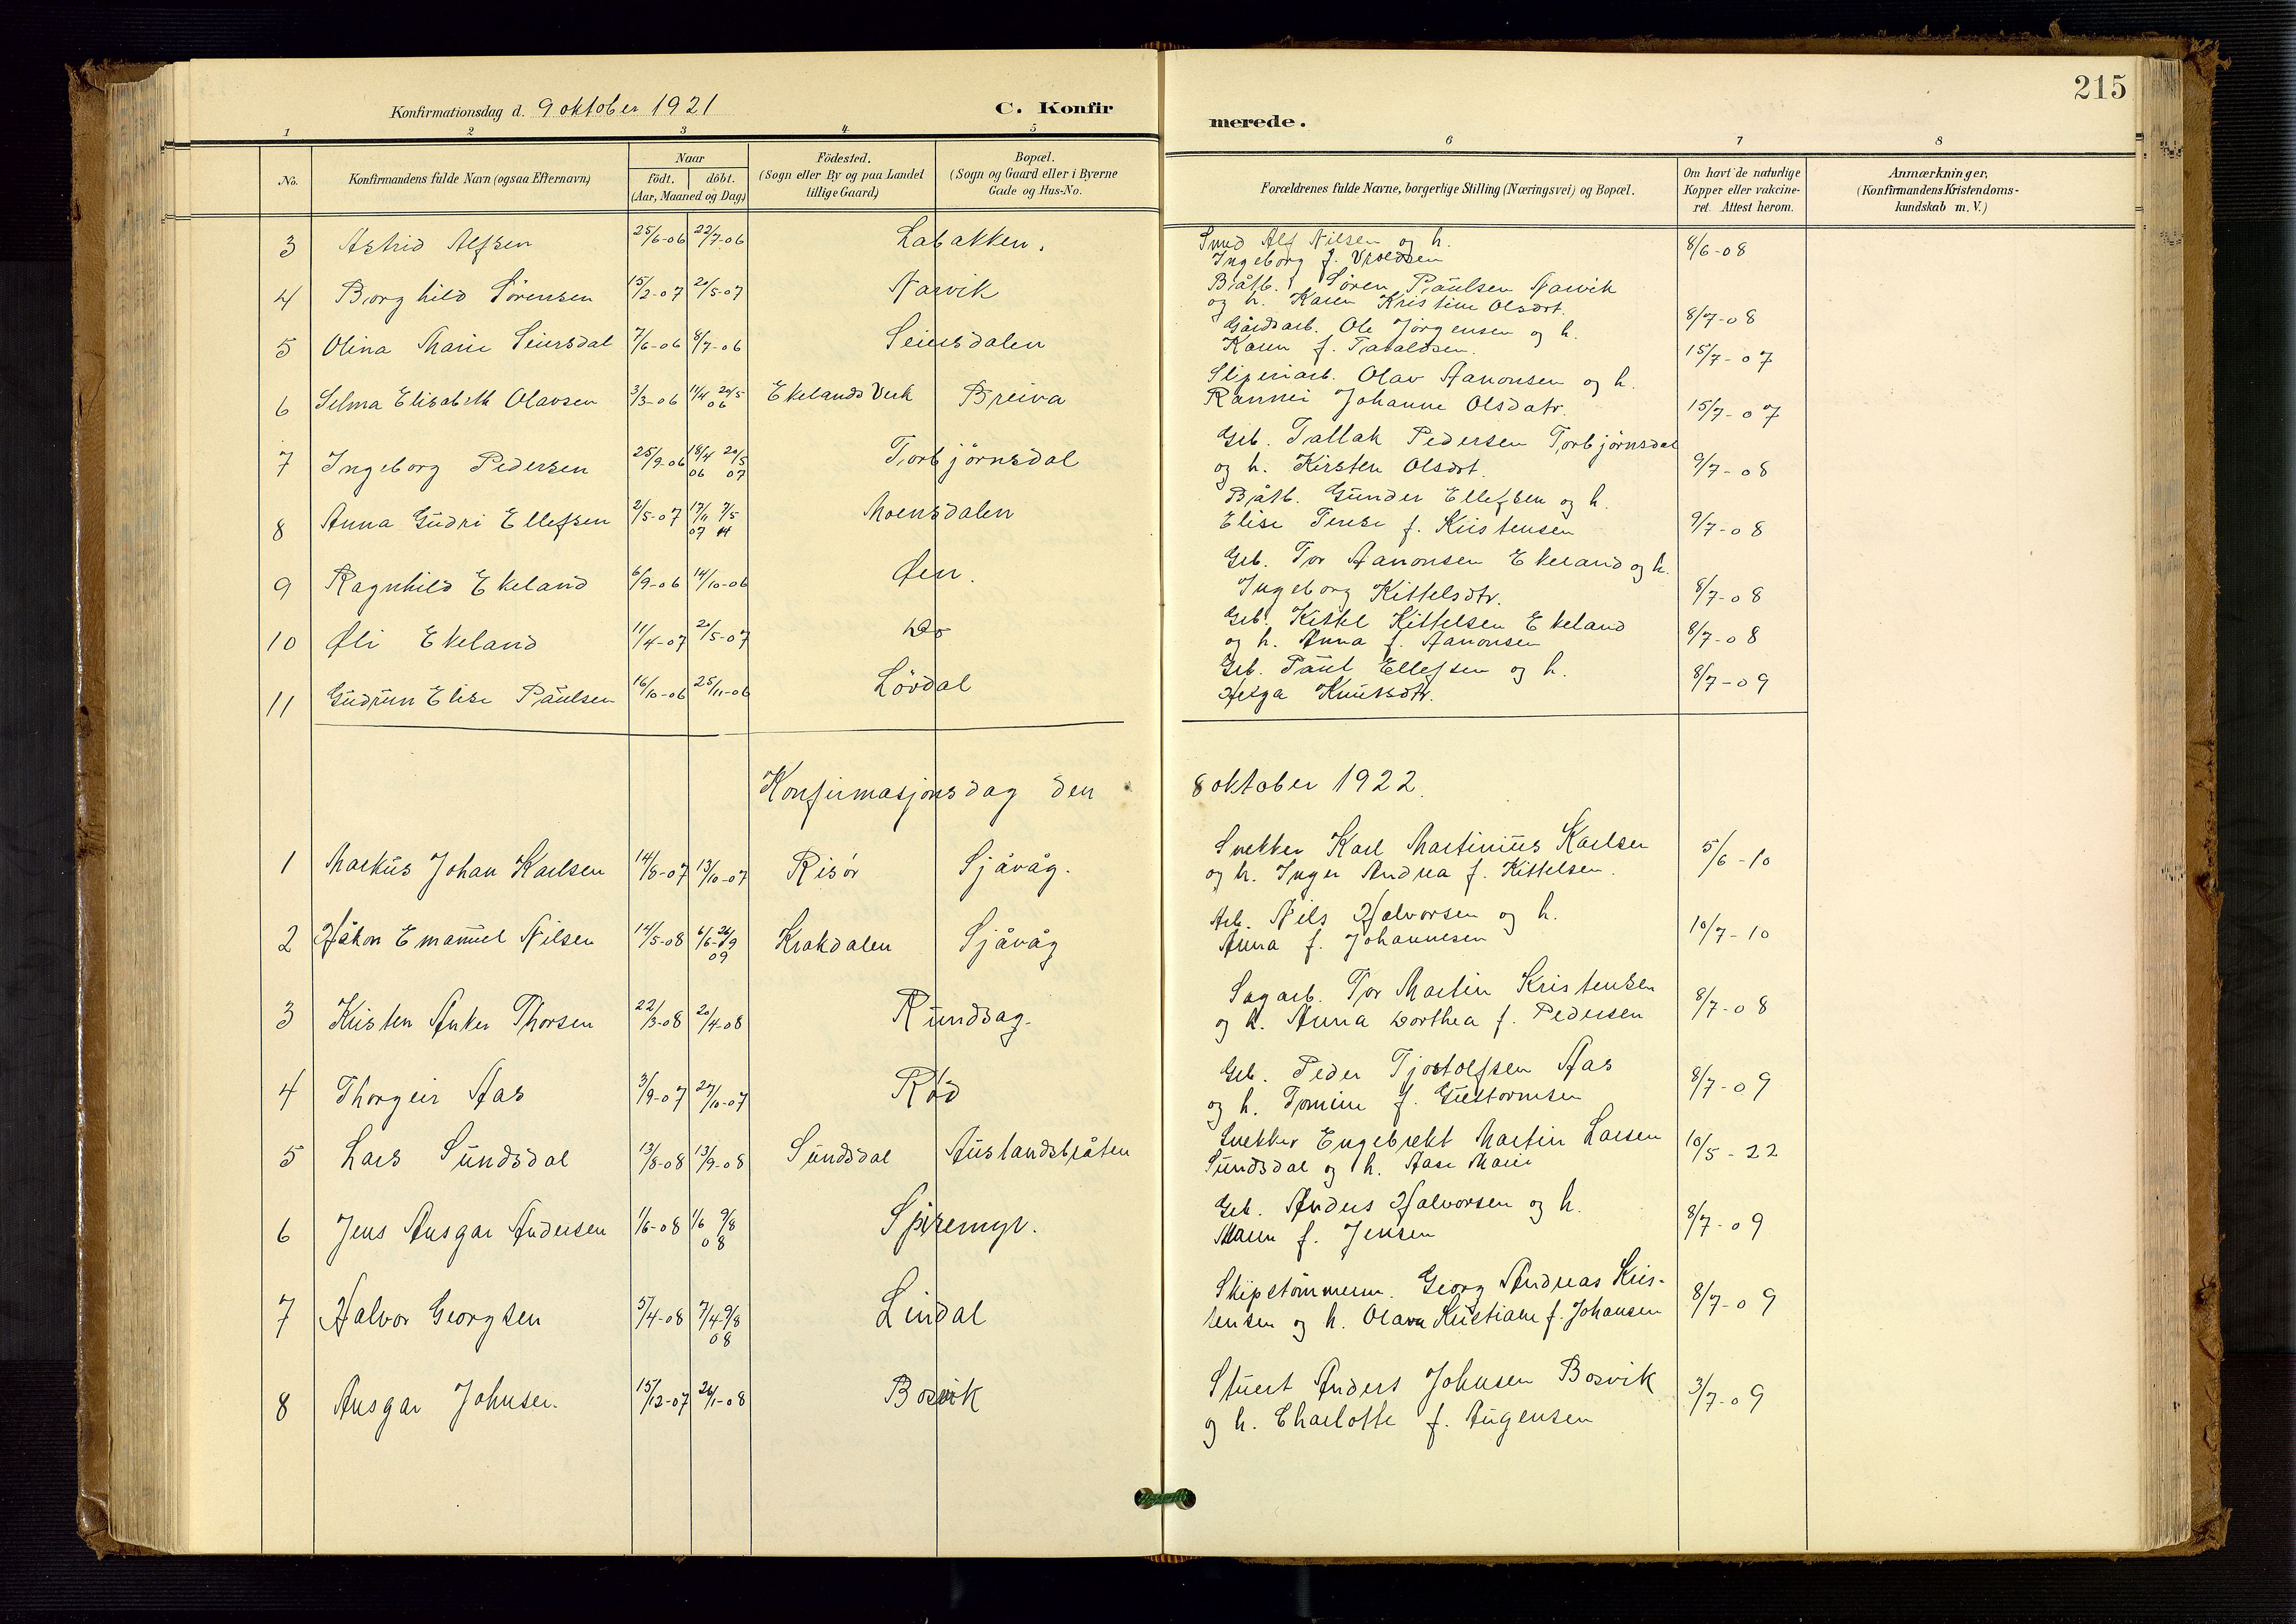 215
Konfirmationsdag d. 9 oktober 1921 C. Konfirmerede.
1 2 3 4 5 6 7 8
No. Konfirmandens fulde Navn (ogsaa Efternavn) Naar födt. döbt. (Aar, Maaned og Dag) Födested. (Sogn eller By og paa Landet tillige Gaard) Bopæl. (Sogn og Gaard eller i Byerne Gade og Hus-No. Forældrenes fulde Navne, borgerlige Stilling (Næringsvei) og Bopæl. Om havt de naturlige Kopper eller vakcineret. Attest herom. Anmærkninger, (Konfirmandens Kristendomskundskab m. V.)
3 Astrid Alfsen 25/6-06 22/7-06 Labakken. Smed Alf Nilsen og h. 8/6-08
Ingeborg f. Vroldsen
4 Borghild Sörensen 15/2-07 20/5-07 Narvik Båtb. Sören Paulsen Narvik 8/7-08
og h. Karen Kristine Olsdt.
5 Olina Marie Seiersdal 7/6-06 8/7-06 Seiersdalen Gårdsarb. Ole Jörgensen og h. 15/7-07
Karen f. Taraldsen.
6 Selma Elisabeth Olavsen 3/3-06 11/4 20/5 06 Ekelands Verk Breiva Sliperiarb. Olav Aanonsen og h. 15/7-07
Rannei Johanne Olsdatr.
7 Ingeborg Pedersen 25/2-06 18/4 20/5 06 07 Torbjörnsdal Grb. Tallak Pedersen Torbjörnsdal 9/7-08
og h. Kirsten Olsdt.
8 Anna Gudri Ellefsen 2/5-07 17/11 7/5 07 Moensdalen Båtb. Gunder Ellefsen og h. 9/7-08
Elise Terese f. Kristensen
9 Ragnhild Ekeland 6/9-06 14/10-06 Øen. Grb. Tor Aanonsen Ekeland og h. 8/7-08
Ingeborg Kittelsdtr.
10 Øli Ekeland 11/4-07 20/5-07 Do Grb. Kittel Kittelsen Ekeland 8/7-08
og h. Anna f. Aanonsen
11 Gudrun Elise Paulsen 16/10-06 25/11-06 Lövdal Grb. Paul Ellefsen og h. 8/7-09
Helga Knutsdtr.
Konfirmasjonsdag den 8 oktober 1922.
1 Markus Johan Karlsen 14/8-07 13/10-07 Risør Sjåvåg. Snekker Karl Martinius Karlsen 5/6-10
og h. Inger Andrea f. Kittelsen.
2 Håkon Emanuel Nilsen 14/5-08 6/6-26/9 09 Krakdalen Sjåvåg Arb. Nils Halvorsen og h. 10/7-10
Anna f. Johannesen
3 Kristen Anker Thorsen 22/3-08 20/4-08 Rundsag. Sagarb. Tor Martin Kristensen 8/7-08
og h. Anna Dorthea f. Pedersen
4 Thorgeir Aas 3/9-07 27/10-07 Rød Grb. Peder Tjostolfsen Aas 8/7-09
og h. Tomine f. Guttormsen
5 Lars Sundsdal 13/8-08 13/9-08 Sundsdal Auslandsbråten Snekker Engebrekt Martin Larsen 10/5-22
Sundsdal og h. Aase Marie
6 Jens Ansgar Andersen 1/6-08 1/6 9/8 08 Spiremyr. Grb. Anders Halvorsen og h. 8/7-09
Maren f. Jensen
7 Halvor Georgsen 5/4-08 7/4-9/8 08 Lindal Skipstömmerm. Georg Andreas Kris- 8/7-09
tensen og h. Olava Kristiane f. Johansen
8 Ansgar Johnsen. 15/12-07 26/1-08 Bosvik Stuert Anders Johnsen Bosvik 3/7-09
og h. Charlotte f. Augensen